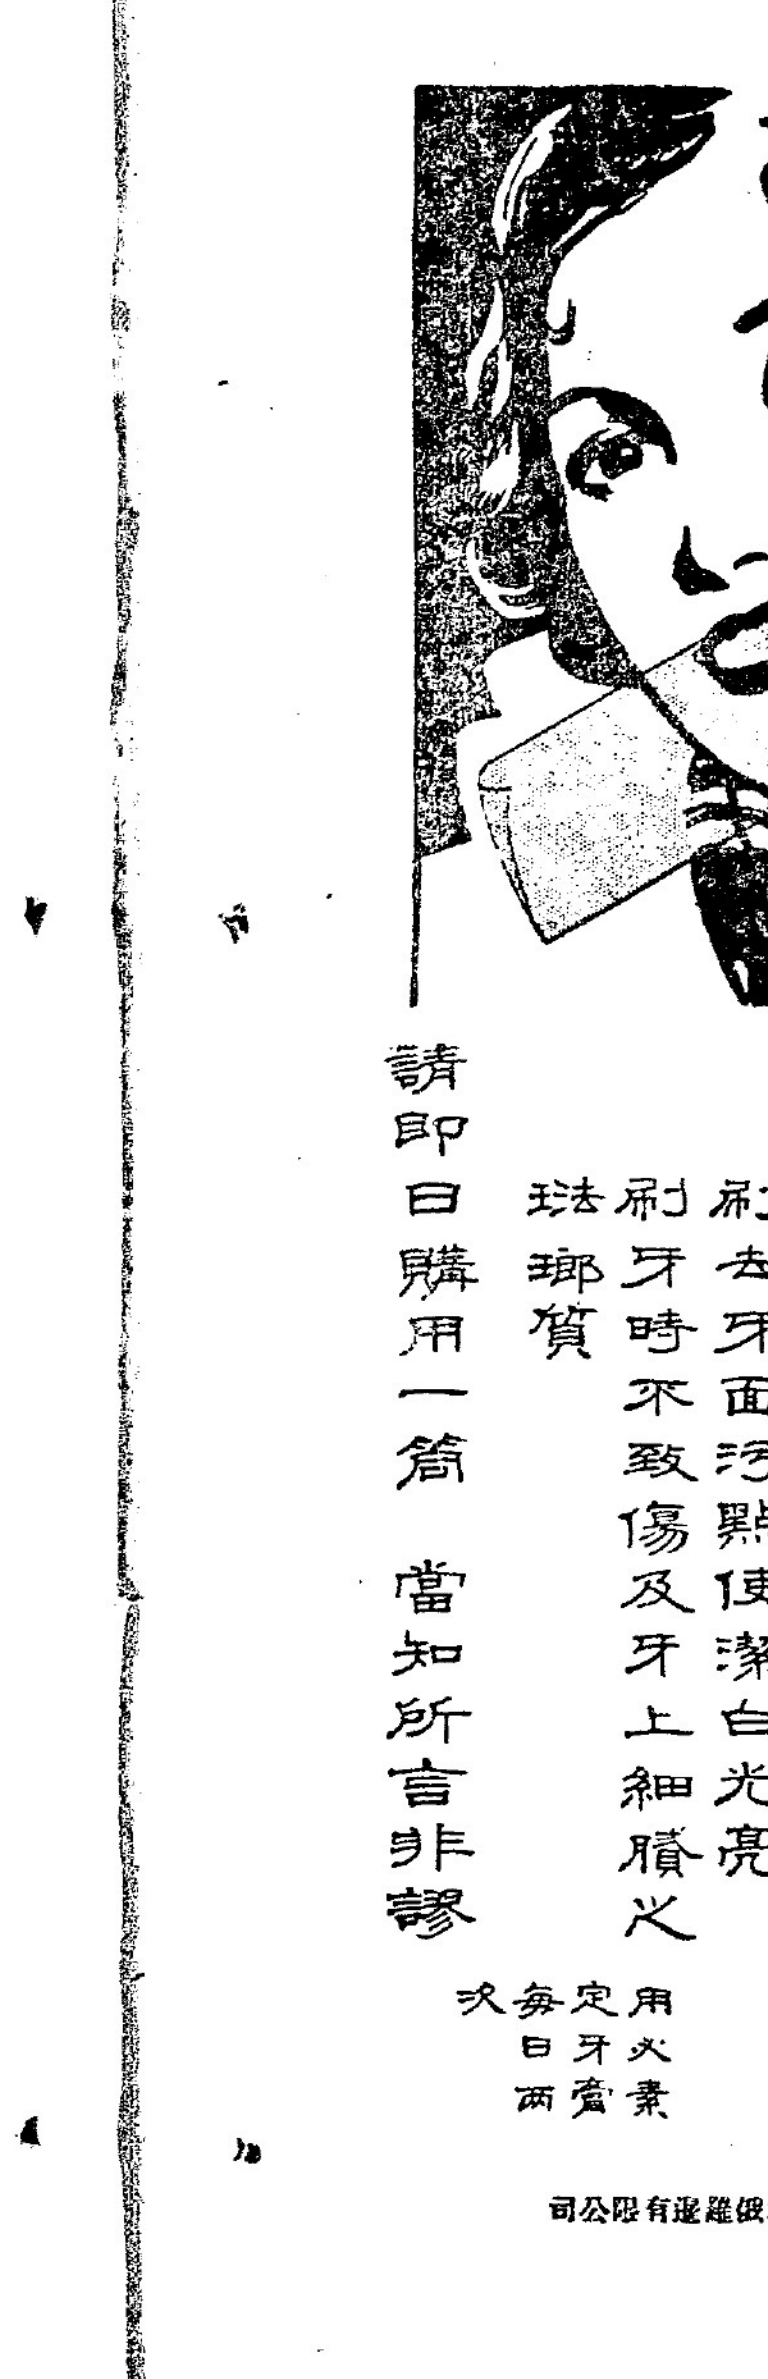 刷去牙面污點使潔白光亮
刷牙時不致傷及牙上細膩之
琺瑯質
請即日購用一筒 當知所言非謬
用必素
定牙膏
每日兩
次
司公限有邏暹俄